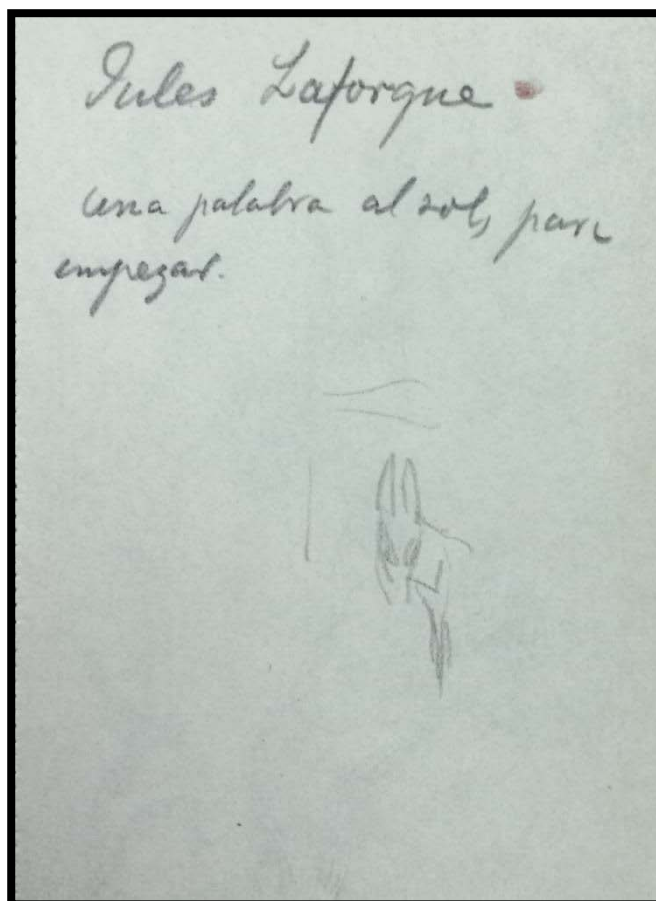 Jules Laforgue
una palabra al sol, para
empezar.